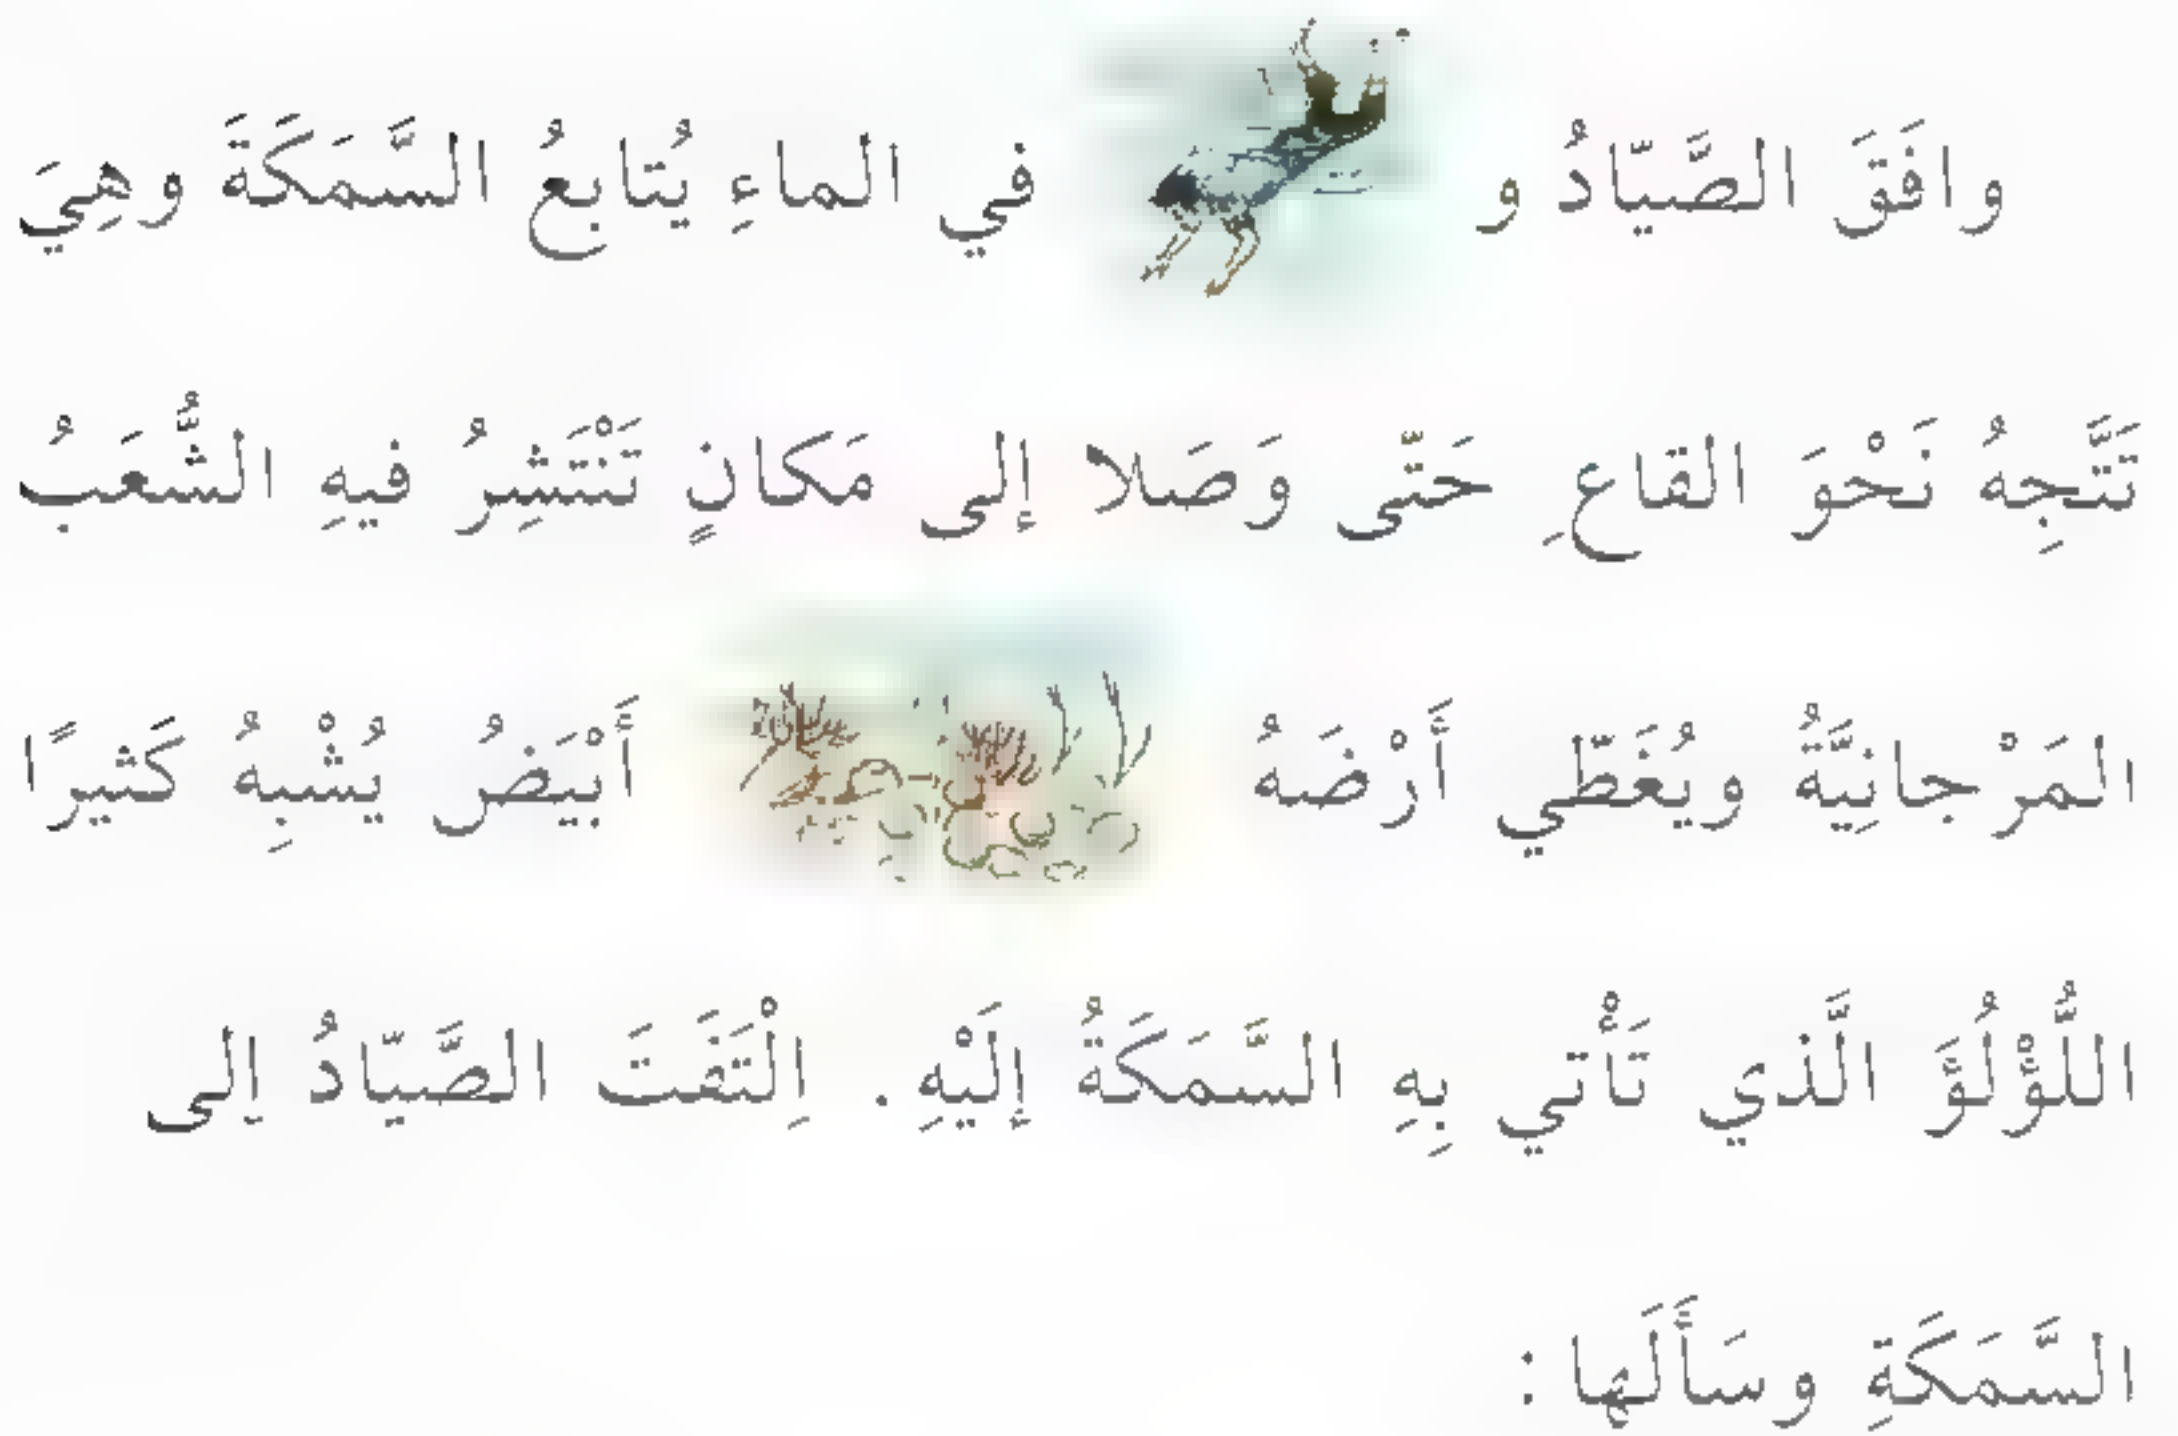 وافَقَ الصَّيّادُ و في الماءِ يُتابعُ السَّمَكَةَ وهِيَ
تَتَّجِهُ نَحْوَ القاعِ حَتّى وَصَلا إلى مَكانٍ تَنْتَشِرُ فيهِ الشُّعَبُ
المَرْجانِيَّةُ ويُغَطّي أَرْضَهُ أَبْيَضُ يُشْبِهُ كَثيرًا
اللُّؤْلُؤَ الَّذي تَأْتي بِهِ السَّمَكَةُ إلَيْهِ. اِلْتَفَتَ الصَّيّادُ اِلى
السَّمَكَةِ وسَأَلَها :